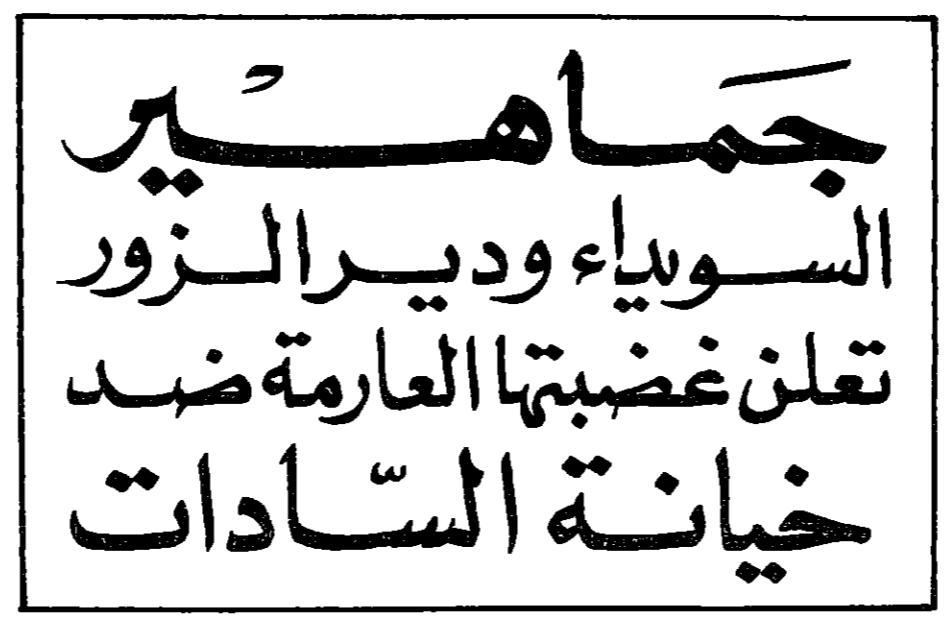 جَماهير
السويداء ودير الزور
تعلن غضبتها العارمة ضد
خيانة السّادات